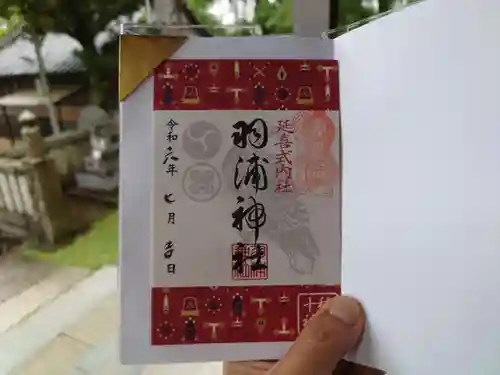 延喜式内社
羽浦神社
令和六年 七月 吉日